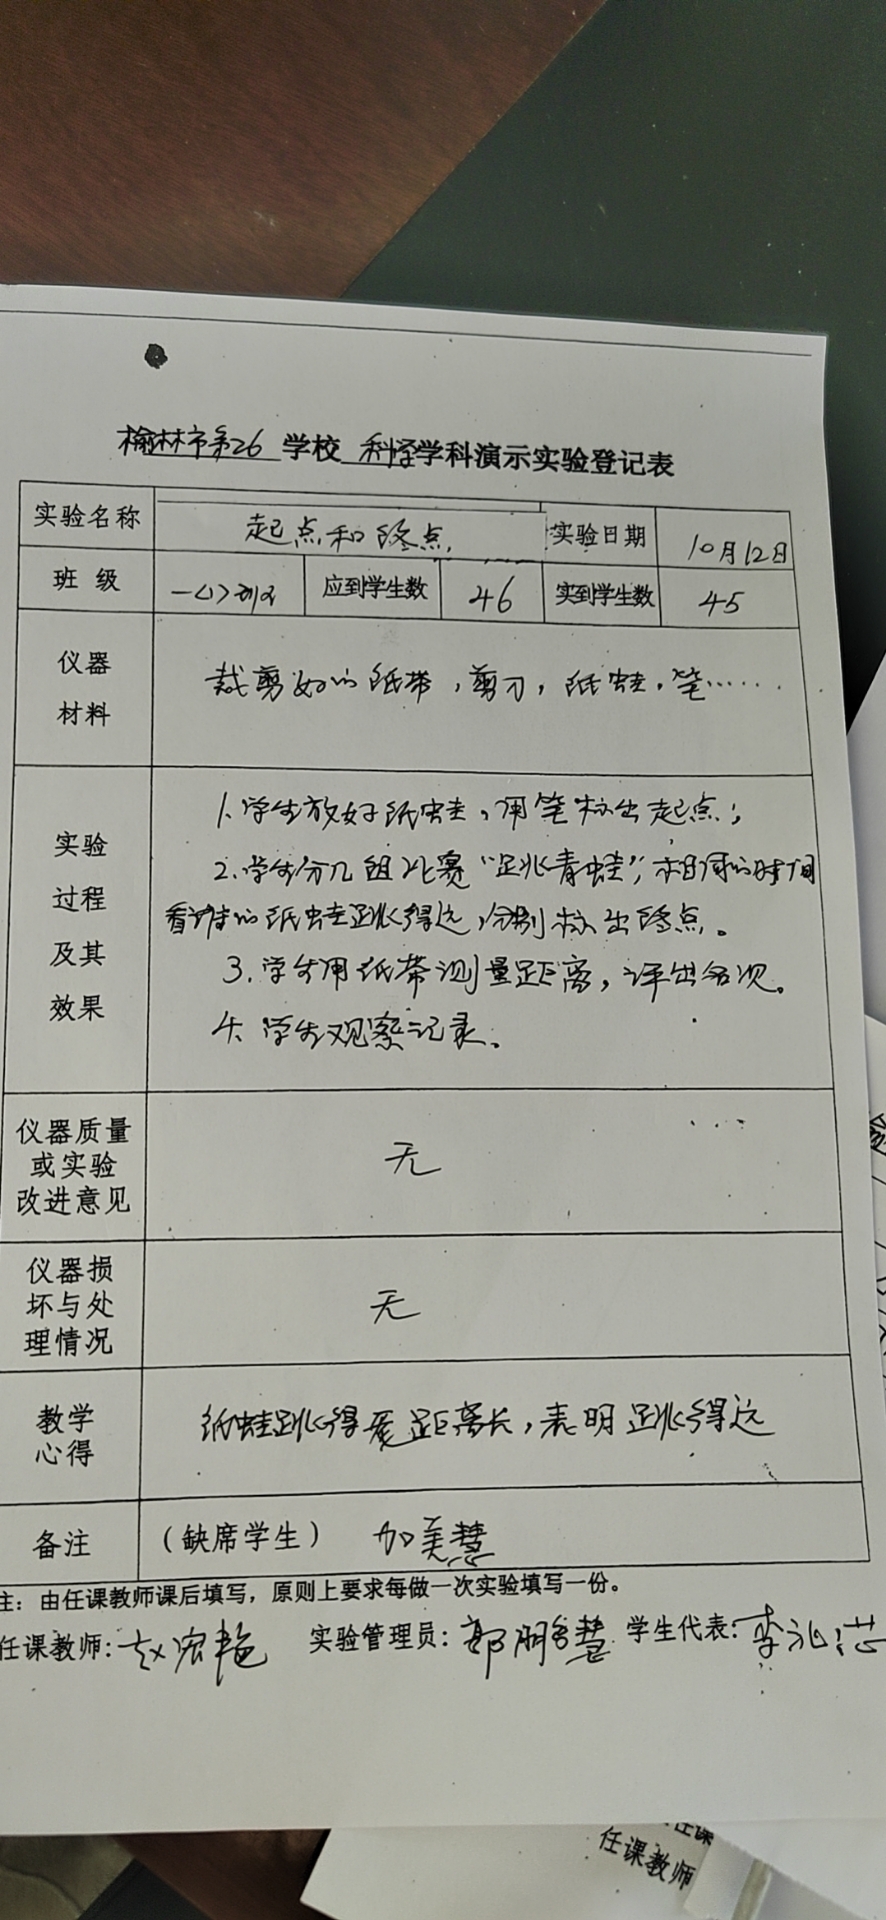 榆林市第26 学校 科学学科演示实验登记表
实验名称 起点和终点 实验日期 10月12日
班级 应到学生数 46 实到学生数 45
仪器
材料
裁剪好的纸带，剪刀，纸蛙，笔……
实验
过程
及其
效果
1.学生放好纸蛙，用笔标出起点；
2.学生分几组比赛“跳青蛙”，相同的时间
看谁的纸蛙跳得远，分别标出终点。
3.学生用纸带测量距离，评出名次。
4.学生观察记录。
仪器质量
或实验
改进意见
无
仪器损
坏与处
理情况
无
教学
心得
纸蛙跳得 距离长，表明跳得远
备注 （缺席学生） 加美慧
注：由任课教师课后填写，原则上要求每做一次实验填写一份。
任课教师：赵宏艳 实验管理员：郭 慧 学生代表：李
任课
任课教师